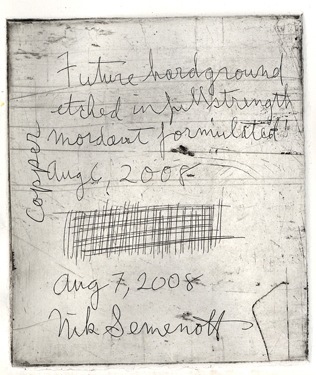 Future hardground
etched in full strength
mordant formulated
Aug 6, 2008
Copper
Aug 7, 2008
Nik Semenoff